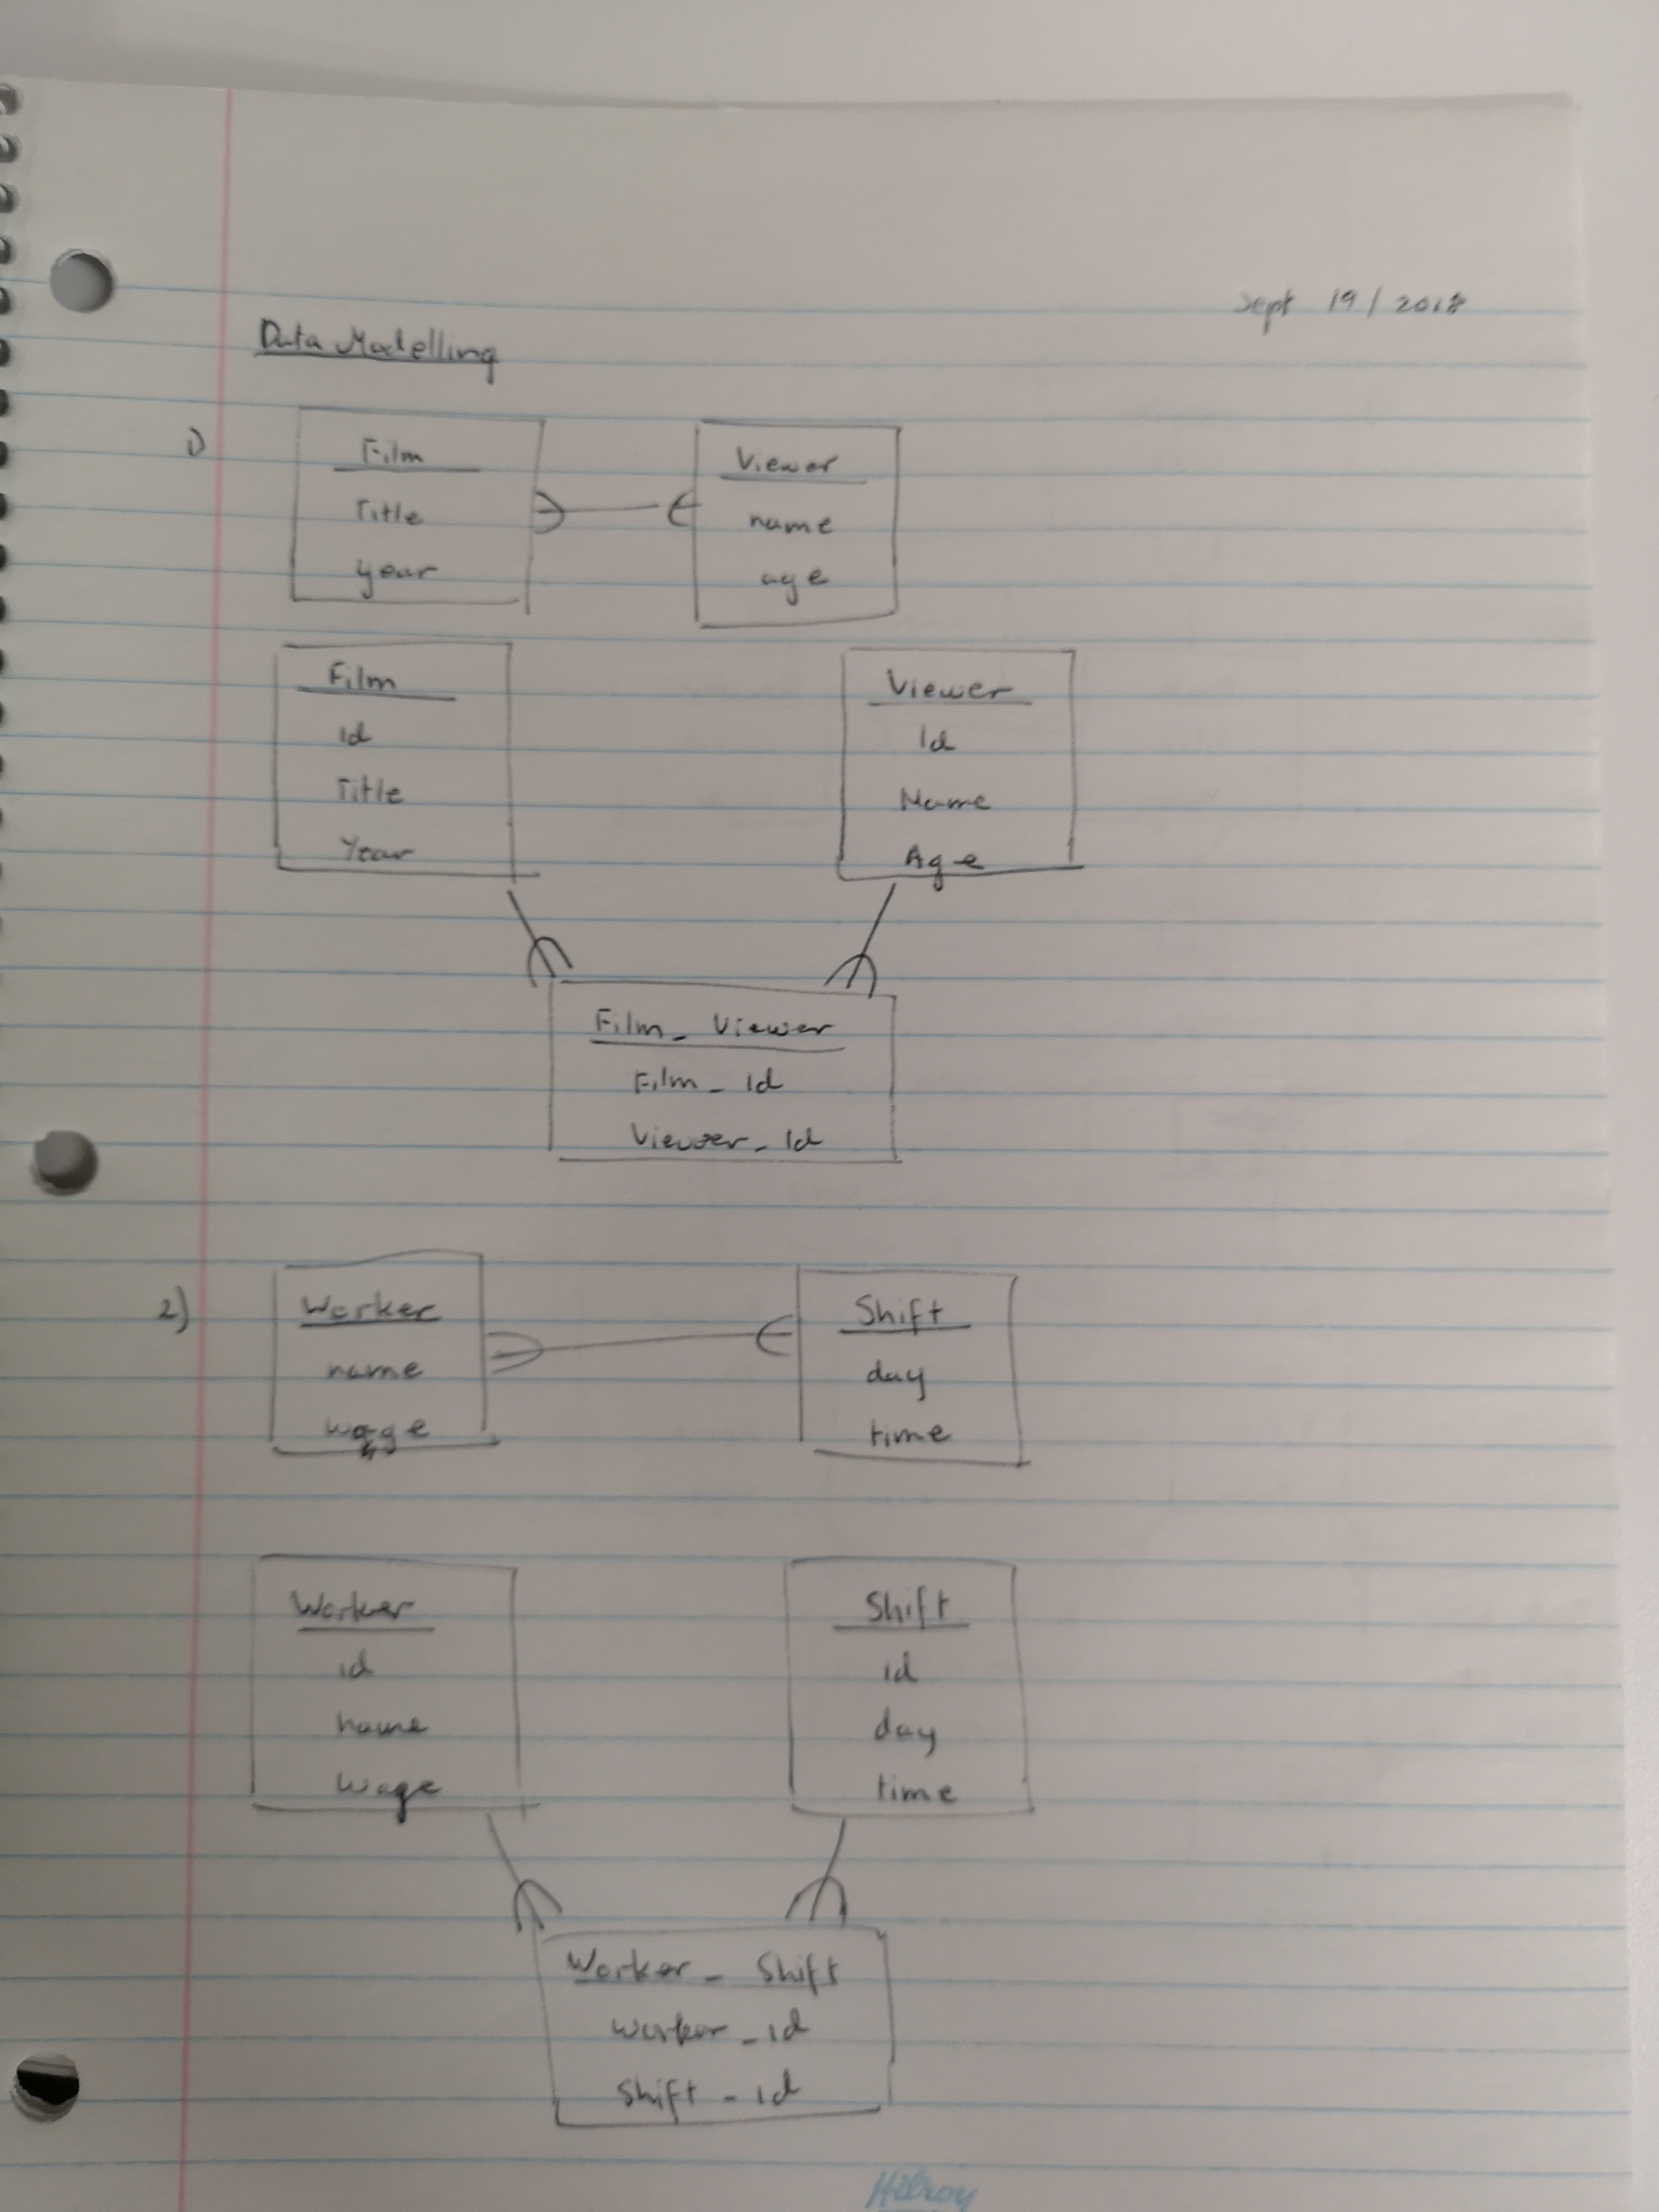 Sept 19 / 2018
Data Modelling
1)
Film
Title
year
Viewer
name
age
Film
id
Title
Year
Viewer
Id
Name
Age
Film_Viewer
Film_id
Viewer_Id
2)
Worker
name
wage
Shift
day
time
Worker
id
name
wage
Shift
id
day
time
Worker_Shift
worker_id
Shift_id
Hilroy